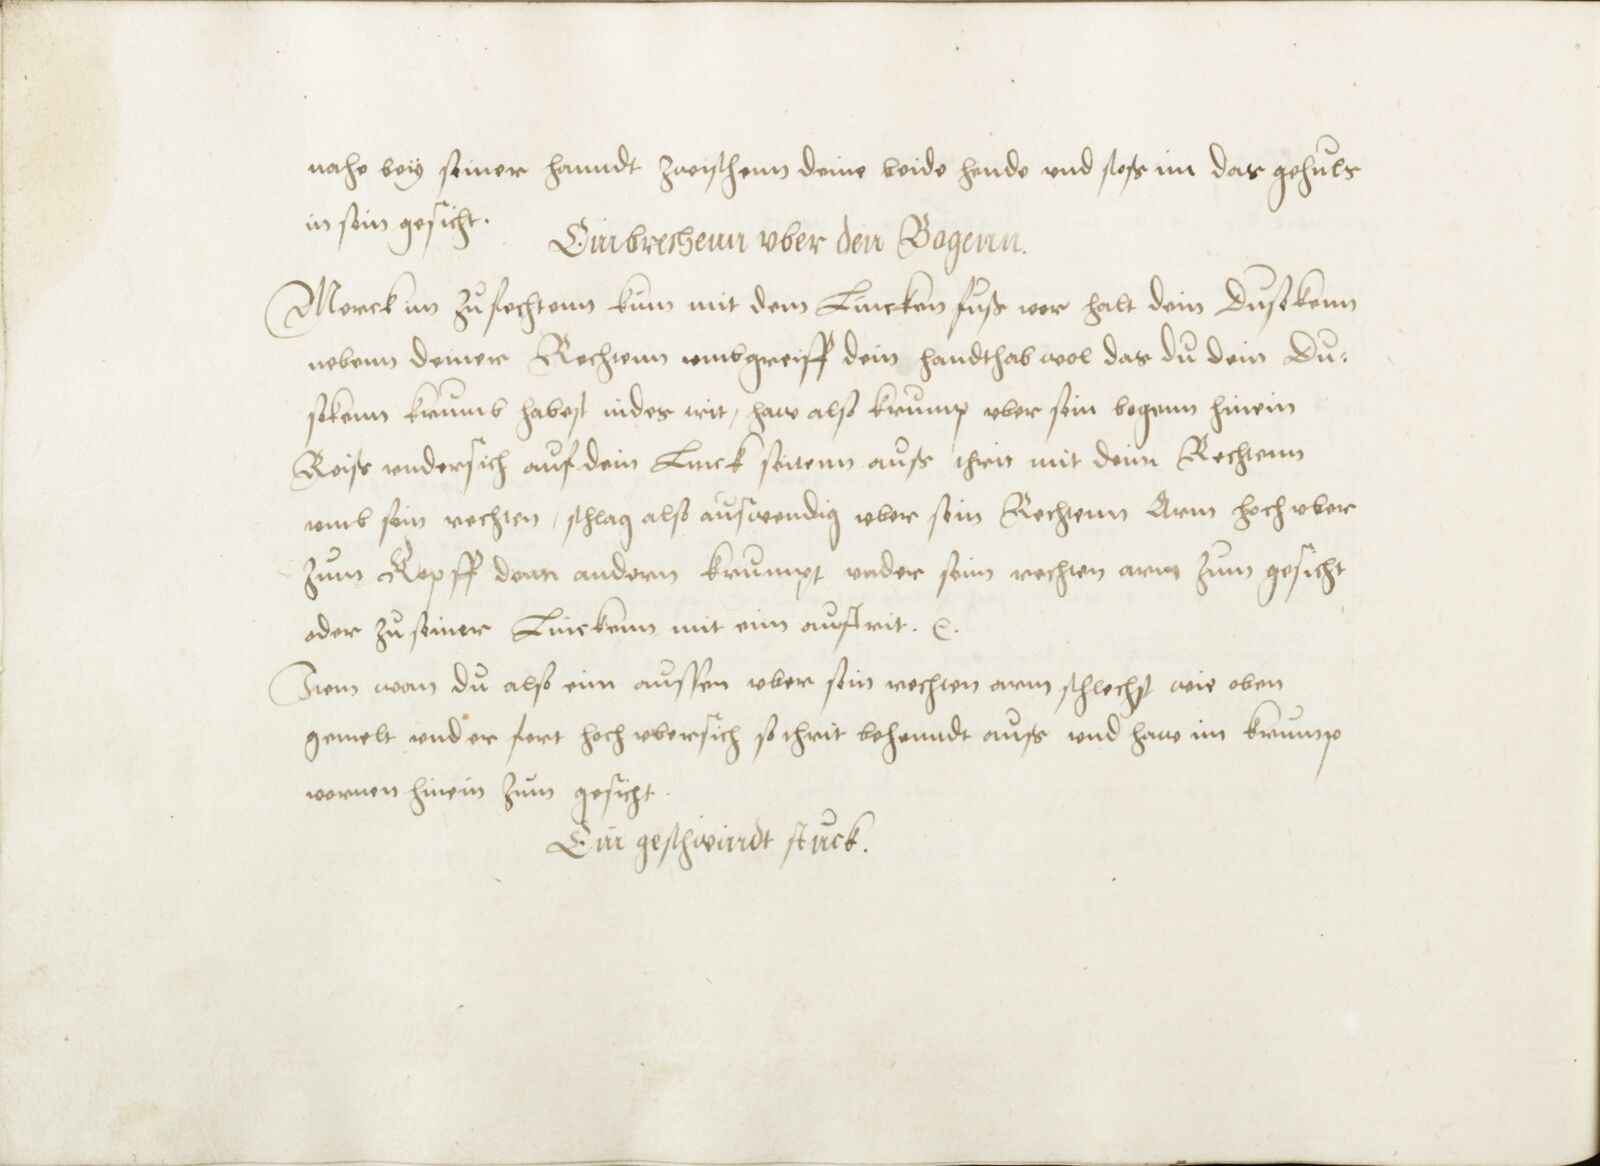 nahe bey seiner hanndt zwischenn deine beide hende vnd stoss im das gehuls
in sein gesicht.
Einbrechenn vber den Bogenn.
Merck im zufechtenn kum mit dem Lincken fuss vor halt dein Dusekenn
nebenn deiner Rechtenn vmbgreiff dein handthab wol das du dein Du-
sekenn krumb habest indes trit, haw also krump vber sein bogenn hinein
Reiss vndersich auf dein Linck seitenn auss thrit mit deim Rechtenn
vmb sein rechten, schlag also auswendig vber sein Rechtenn Arm hoch vber
zum Kopff denn andern krumpt vnder seim rechten arm zum gesicht
oder zu seiner Linckenn mit eim austrit. &.
Item wan du also eim aussen vber sein rechten arm schlechst wie oben
gemelt vnd er fert hoch vbersich so thrit behenndt auss vnd haw im krump
vornen hinein zum gesicht.
Ein geschwindt stuck.